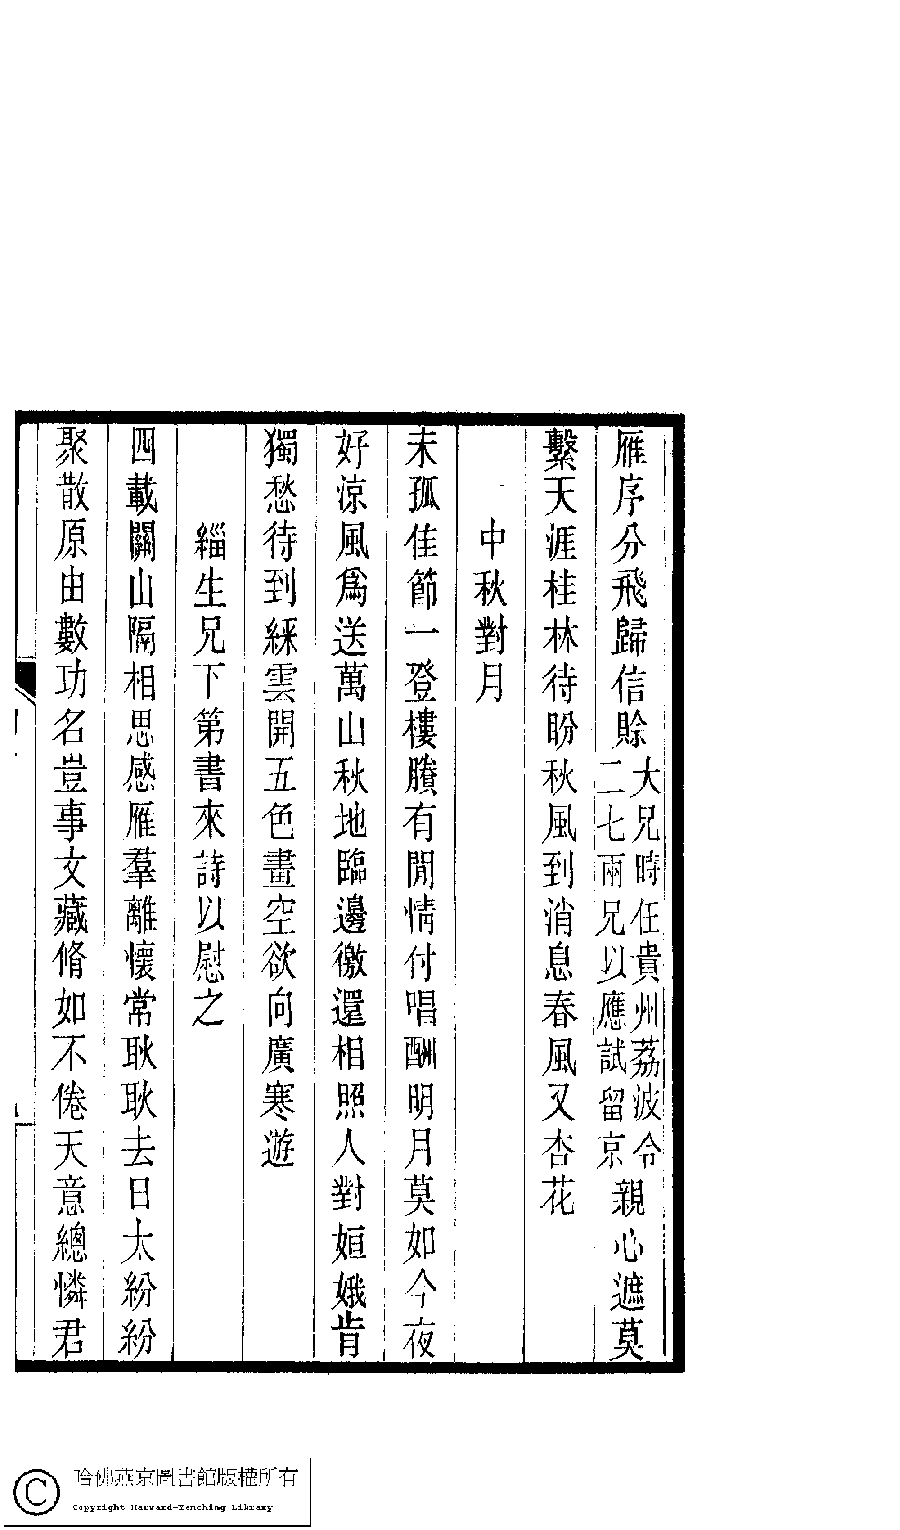 雁序分飛歸信賖大兄時任貴州荔波令二七兩兄以應試留京親心遮莫
繫天涯桂林待盼秋風到消息春風又杏花
中秋對月
未孤佳節一登樓賸有閒情付唱酬明月莫如今夜
好涼風爲送萬山秋地臨邊徼還相照人對姮娥肯
獨愁待到綵雲開五色畫空欲向廣寒遊
緇生兄下第書來詩以慰之
四載關山隔相思感雁羣離懷常耿耿去日太紛紛
聚散原由數功名豈事文藏脩如不倦天意總憐君
哈佛燕京圖書館版權所有
Copyright Harvard-Yenching Library